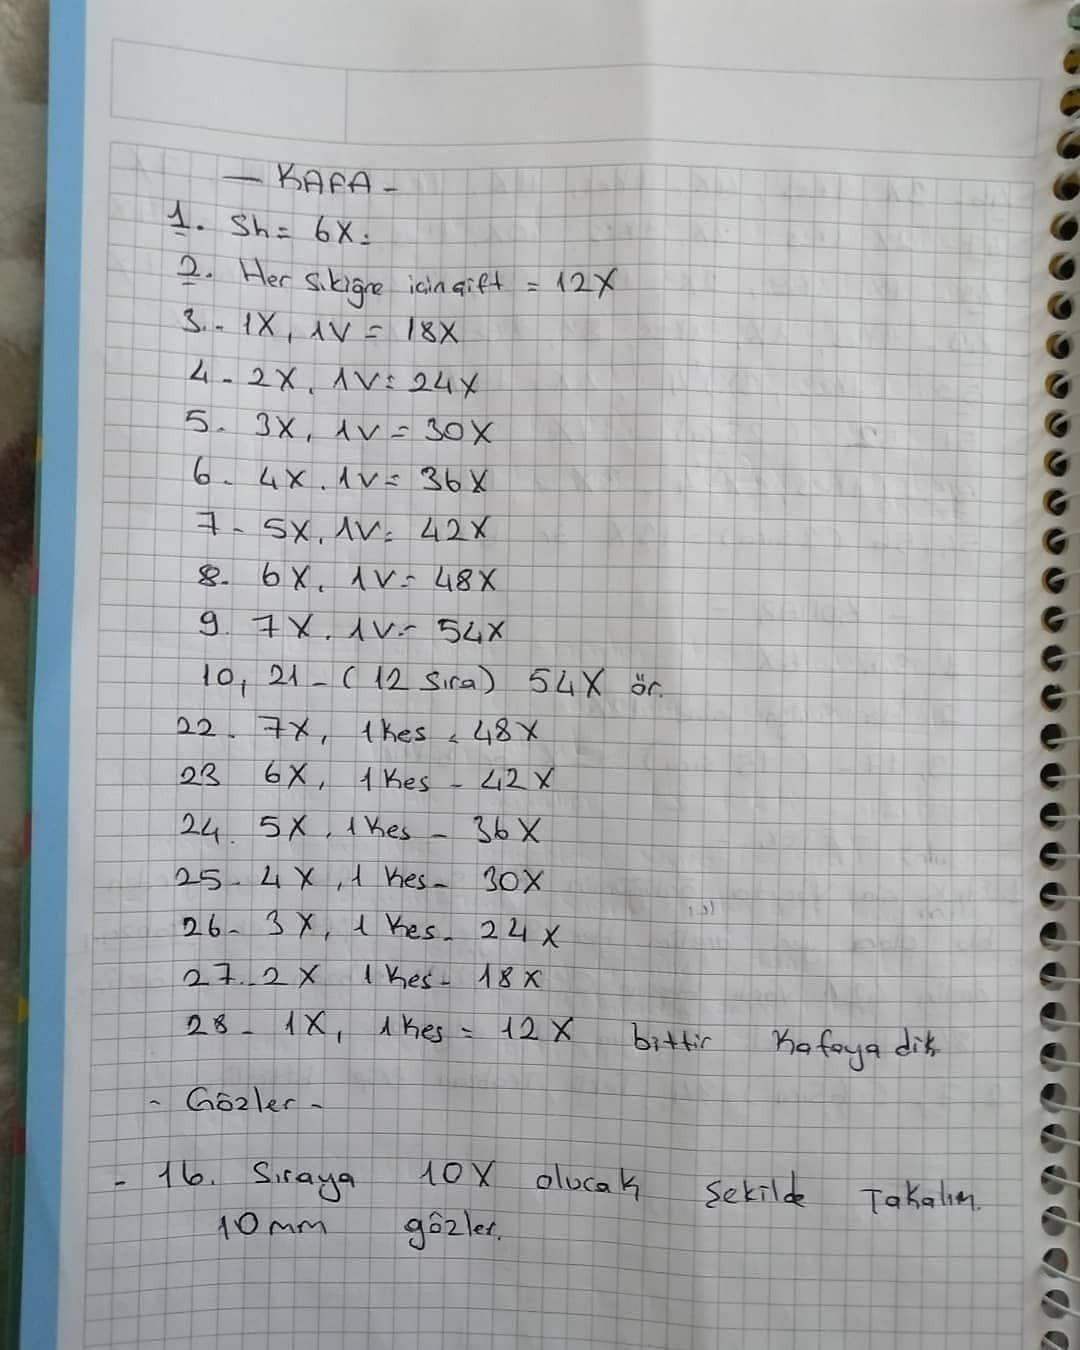 - KAFA -
1. Sh = 6X =
2. Her Sıkiğne icin çift = 12X
3.- 1X, 1V = 18X
4 - 2X, 1V = 24X
5. 3X, 1V = 30X
6 - 4X, 1V = 36X
7 - 5X, 1V = 42X
8. 6X, 1V = 48X
9. 7X, 1V - 54X
10, 21 - (12 Sıra) 54X ör.
22. 7X, 1 Kes = 48X
23 6X, 1 Kes - 42X
24. 5X, 1 Kes - 36X
25 - 4X, 1 Kes - 30X
26 - 3X, 1 Kes - 24X
27. 2X 1 Kes - 18X
28 - 1X, 1 Kes = 12X bittir Kafaya dik
- Gözler -
- 16. Sıraya 10X olucak Şekilde Takalım.
10mm gözler.